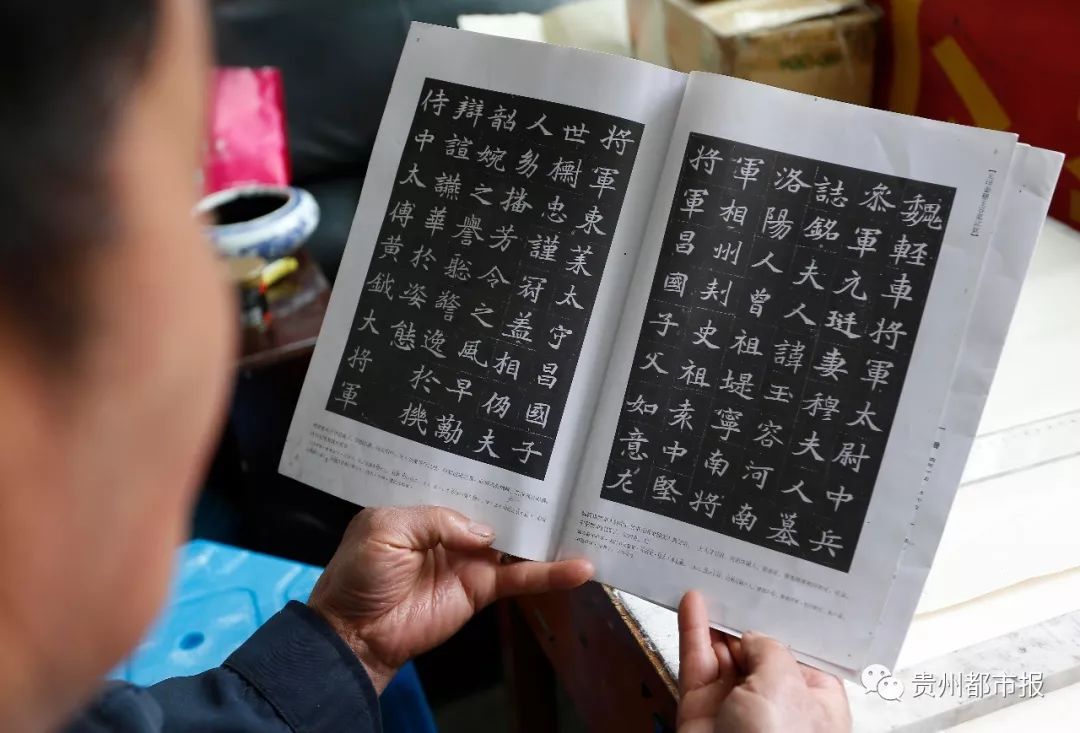 魏輕車將軍太尉中兵
叅軍元珽妻穆夫人墓
誌銘夫人諱玉容河南
洛陽人曾祖堤寧南將
軍相州刾史祖素中堅
將軍昌國子父如意龙
將軍東莱太守昌國子
世櫉忠謹冠盖相仍夫
人㓜播芳令之風早勤
韶婉之譽聡警逸於機
辯諠讌華於姿態
侍中太傅黄鉞大將軍
贵州都市报